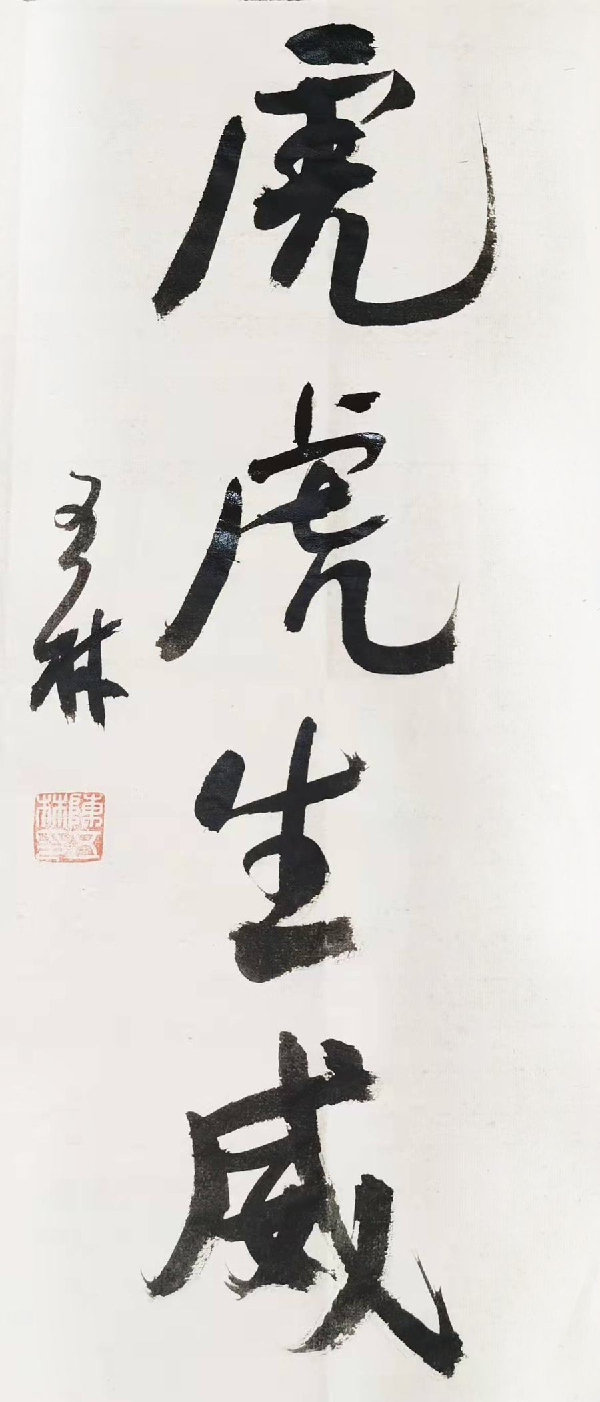 虎虎生威
林